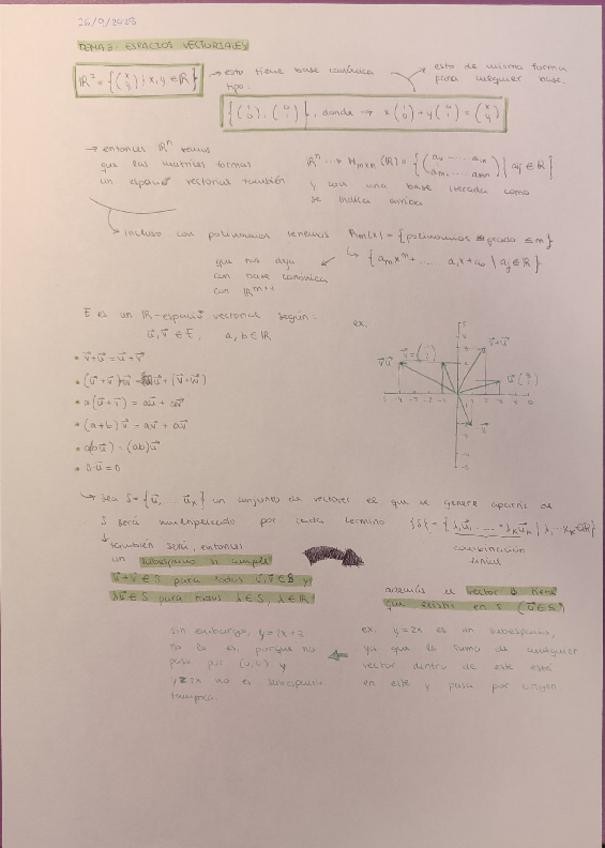 26/9/2023
TEMA 3: ESPACIOS VECTORIALES
ℝ² = {(x y) | x, y ∈ ℝ} → esto tiene base canónica tipo:
→ esto de misma forma para cualquier base.
{(1 0), (0 1)}, donde → x(1 0) + y(0 1) = (x y)
→ entonces ℝⁿ
que las matrices forman
un espacio vectorial también
ℝⁿ ... → Mₘₓₙ(ℝ) = {(a₁₁ ... a₁ₙ aₘ₁ ... aₘₙ) | aᵢⱼ ∈ ℝ}
y con una base como
se indica arriba
↳ incluso con polinomios tenemos ℝₘ[x] = {polinomios grado ≤ m}
↳ {aₘxᵐ + ... a₁x + a₀ | aⱼ ∈ ℝ}
que nos deja
con base canónica
con ℝᵐ⁺¹
E es un ℝ-espacio vectorial según:
u⃗, v⃗ ∈ E, a, b ∈ ℝ
ex.
• v⃗+u⃗ = u⃗+v⃗
• (u⃗+v⃗)+w⃗ = u⃗+(v⃗+w⃗)
• a(u⃗+v⃗) = au⃗ + av⃗
• (a+b)v⃗ = av⃗ + av⃗
• a(bu⃗) = (ab)u⃗
• 0·u⃗ = 0
v⃗+u⃗
↳ Sea S = {u⃗₁ ... uₖ} un conjunto de vectores el que se genere apartir de
S será multiplicado por cada termino {S} = {λ₁u⃗₁ ... + λₖu⃗ₖ | λ₁ ... λₖ ∈ ℝ}
combinación
lineal
↓ también será, entonces
un subespacio si cumple
u⃗+v⃗ ∈ S para todos u⃗, v⃗ ∈ S y
λu⃗ ∈ S para todos λ ∈ S, λ ∈ ℝ
además el vector 0 tiene
que existir en S (0⃗ ∈ S)
ex. y=2x es un subespacio,
ya que la suma de cualquier
vector dentro de este está
en este y pasa por origen
sin embargo, y=2x+2
no lo es, porque no
pasa por (0,0) y
no es subespacio
tampoco.